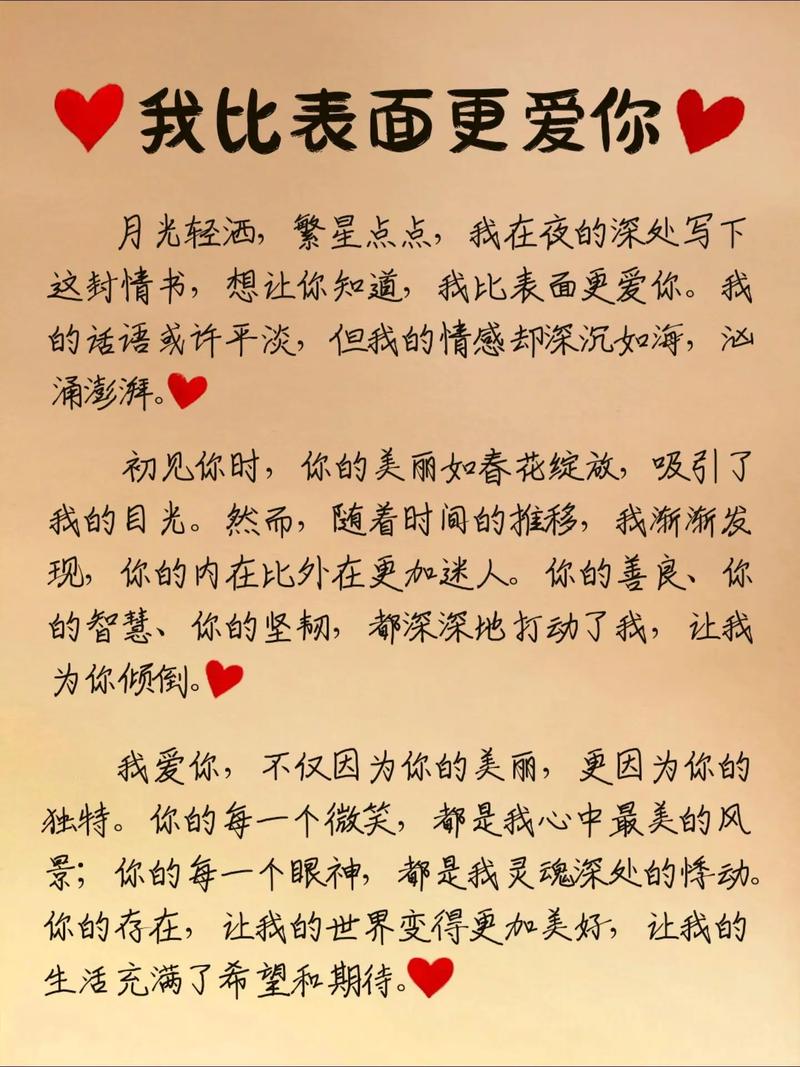 我比表面更爱你
月光轻洒，繁星点点，我在夜的深处写下
这封情书，想让你知道，我比表面更爱你。我
的话语或许平淡，但我的情感却深沉如海，汹
涌澎湃。
初见你时，你的美丽如春花绽放，吸引了
我的目光。然而，随着时间的推移，我渐渐发
现，你的内在比外在更加迷人。你的善良、你
的智慧、你的坚韧，都深深地打动了我，让我
为你倾倒。
我爱你，不仅因为你的美丽，更因为你的
独特。你的每一个微笑，都是我心中最美的风
景；你的每一个眼神，都是我灵魂深处的悸动。
你的存在，让我的世界变得更加美好，让我的
生活充满了希望和期待。